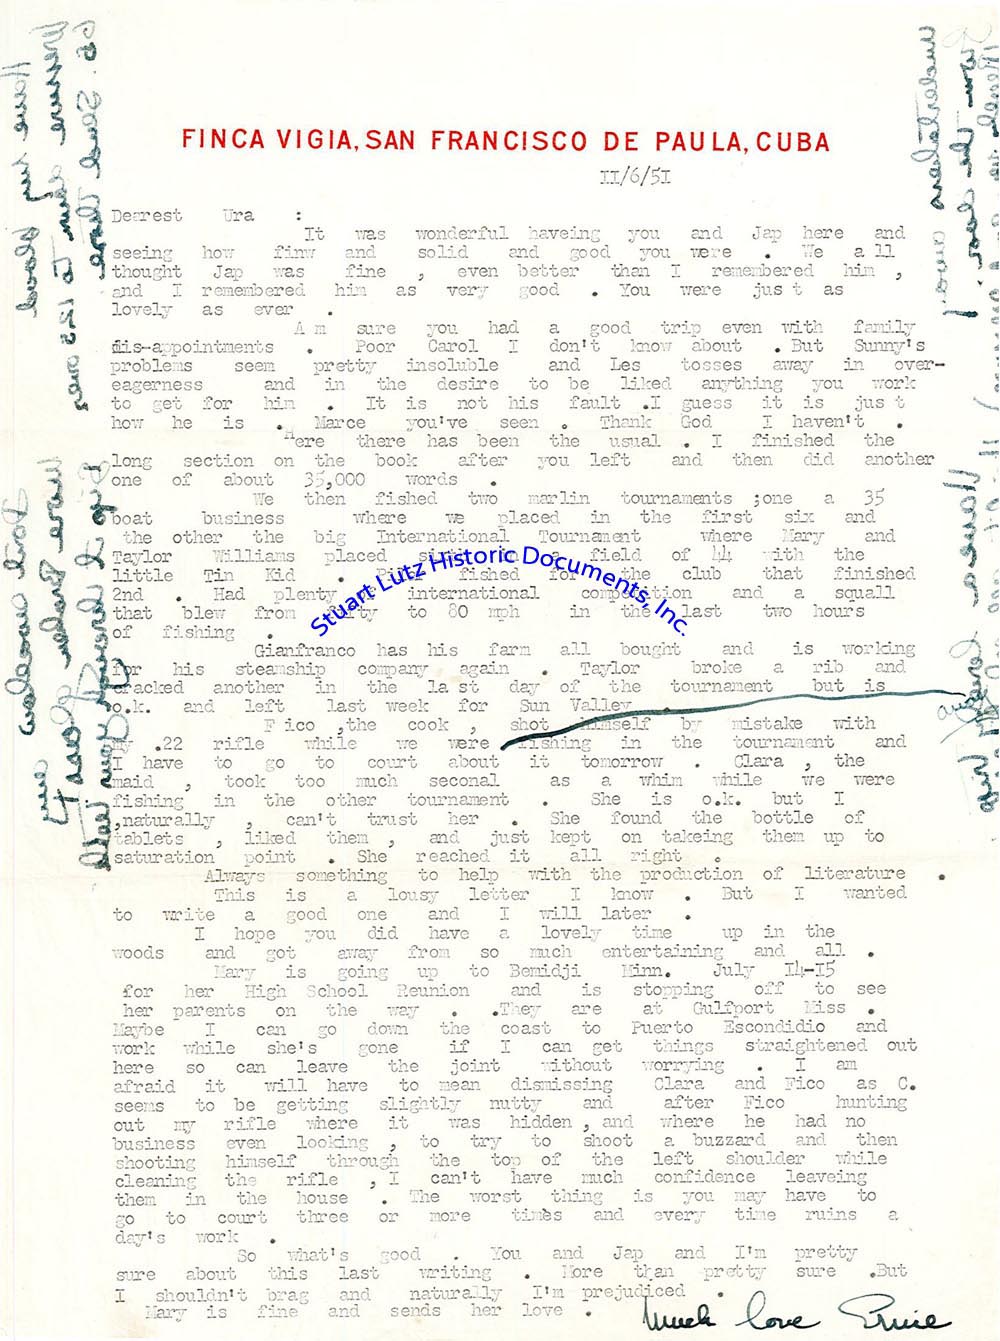 FINCA VIGIA, SAN FRANCISCO DE PAULA, CUBA
II/6/5I
Dearest Ura :
It was wonderful haveing you and Jap here and
seeing how finw and solid and good you were . We a ll
thought Jap was fine , even better than I remembered him ,
and I remembered him as very good . You were jus t as
lovely as ever .
A m sure you had a good trip even with family
dis-appointments . Poor Carol I don't know about . But Sunny's
problems seem pretty insoluble and Les tosses away in over-
eagerness and in the desire to be liked anything you work
to get for him . It is not his fault .I guess it is jus t
how he is . Marce you've seen . Thank God I haven't .
Here there has been the usual . I finished the
long section on the book after you left and then did another
one of about 35,000 words .
We then fished two marlin tournaments ;one a 35
boat business where we placed in the first six and
the other the big International Tournament where Mary and
Taylor Williams placed in a field of 44 with the
little Tin Kid . fished for the club that finished
2nd . Had plenty international competition and a squall
that blew from to 80 mph in the last two hours
of fishing .
Gianfranco has his farm all bought and is working
for his steamship company again . Taylor broke a rib and
cracked another in the la st day of the tournament but is
o.k. and left last week for Sun Valley
F ico ,the cook , shot himself by mistake with
my .22 rifle while we were fishing in the tournament and
I have to go to court about it tomorrow . Clara , the
maid , took too much seconal as a whim while we were
fishing in the other tournament . She is o.k. but I
,naturally , can't trust her . She found the bottle of
tablets , liked them , and just kept on takeing them up to
saturation point . She reached it all right .
Always something to help with the production of literature .
This is a lousy letter I know . But I wanted
to write a good one and I will later .
I hope you did have a lovely time up in the
woods and got away from so much entertaining and all .
Mary is going up to Bemidji Minn. July I4-I5
for her High School Reunion and is stopping off to see
her parents on the way . .They are at Gulfport Miss .
Maybe I can go down the coast to Puerto Escondidio and
work while she's gone if I can get things straightened out
here so can leave the joint without worrying . I am
afraid it will have to mean dismissing Clara and Fico as C.
seems to be getting slightly nutty and after Fico hunting
out my rifle where it was hidden , and where he had no
business even looking , to try to shoot a buzzard and then
shooting himself through the top of the left shoulder while
cleaning the rifle , I can't have much confidence leaveing
them in the house . The worst thing is you may have to
go to court three or more times and every time ruins a
day's work .
So what's good . You and Jap and I'm pretty
sure about this last writing . More than pretty sure .But
I shouldn't brag and naturally I'm prejudiced .
Mary is fine and sends her love .
Much love Ernie
Stuart Lutz Historic Documents, Inc.